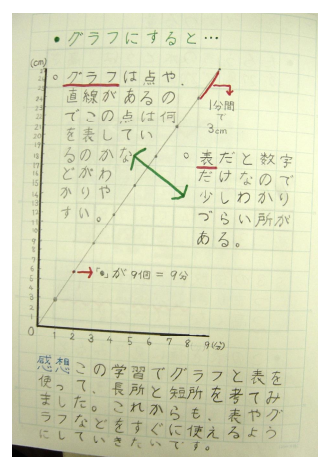 ・グラフにすると…
(cm)
。グラフは点や、
直線があるの
でこの点は何
を表してい
るのかな
どがわ
かりや
すい。
1分間
で
3cm
。表だと数字
だけなので
少しわかり
づらい所が
ある。
「・」が9個=9分
0 1 2 3 4 5 6 7 8 9(分)
感想 この学習でグラフと表を
使って、長所と短所を考てみ
ました。これからも、表やグ
ラフなどをすぐに使えるよう
にしていきたいです。